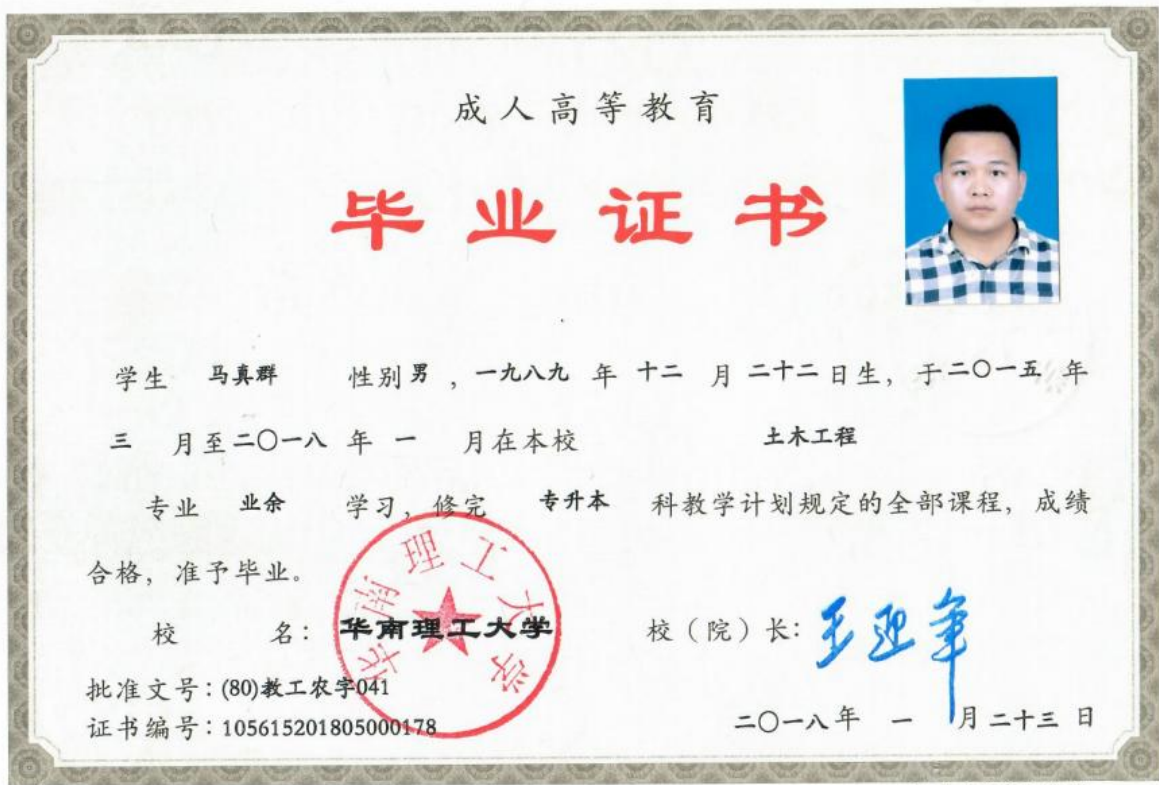 成人高等教育
毕业证书
学生 马真群 性别 男 ，一九八九 年 十二 月 二十二 日生，于 二〇一五 年
三 月至 二〇一八 年 一 月在本校 土木工程
专业 业余 学习，修完 专升本 科教学计划规定的全部课程，成绩
合格，准予毕业。
校 名：华南理工大学 校（院）长：王迎军
华南理工大学
批准文号：(80)教工农字041
证书编号：105615201805000178
二〇一八 年 一 月 二十三 日